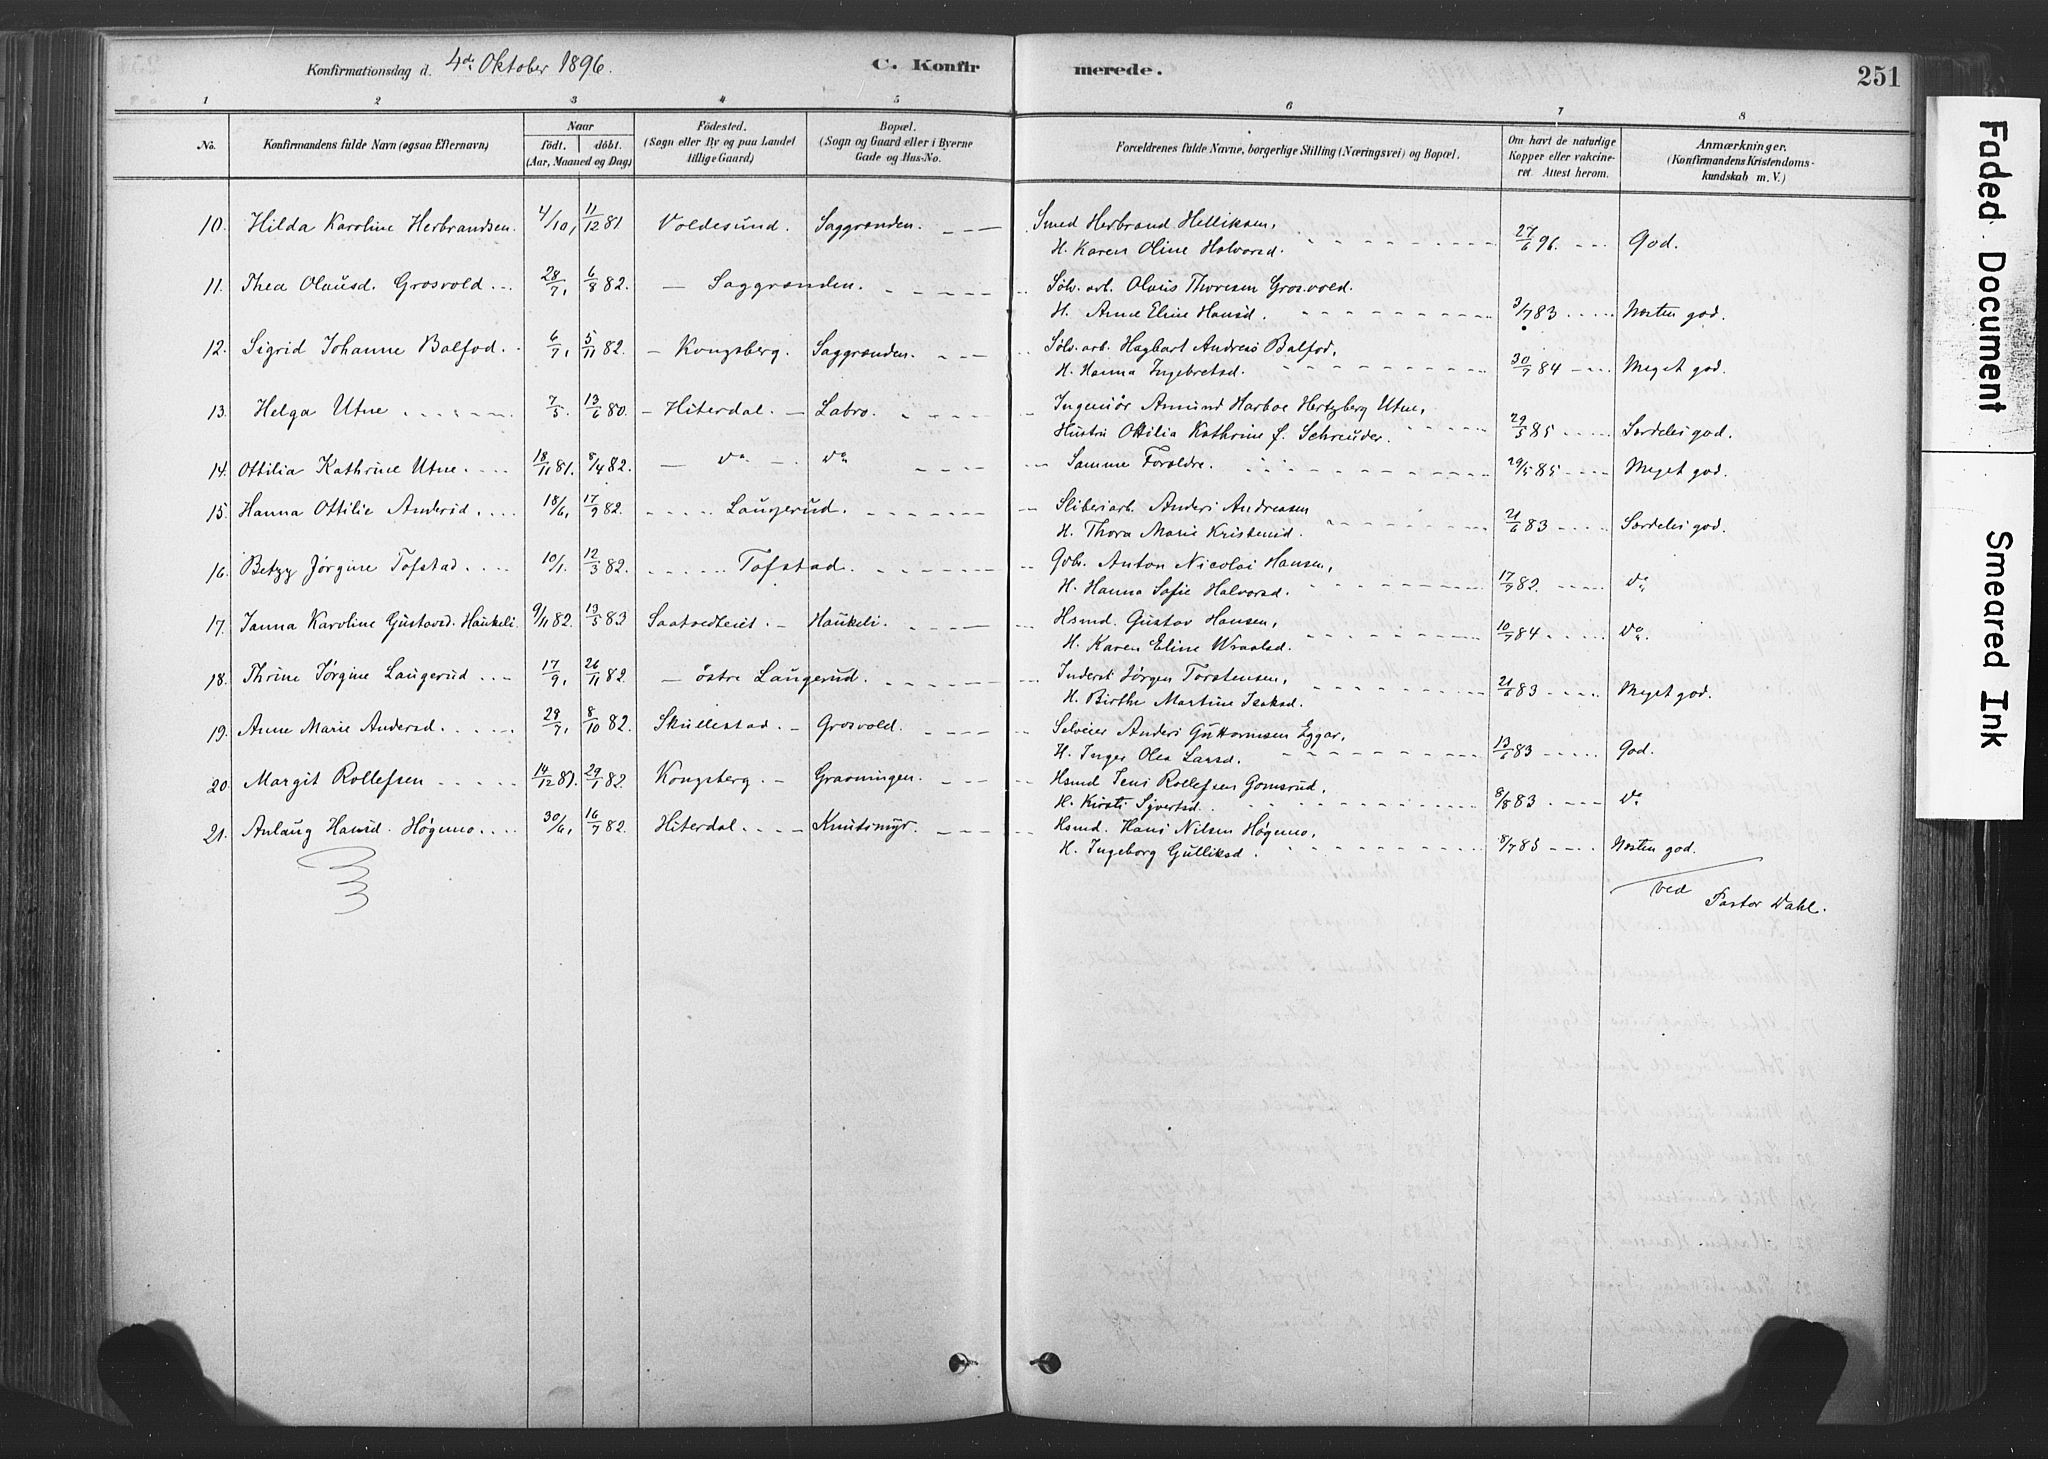 Konfirmationsdag d. 4de Oktober 1896. C. Konfirmerede. 251
1 2 3 4 5 6 7 8
No. Konfirmandens fulde Navn (ogsaa Efternavn) Naar født. døbt. (Aar, Maaned og Dag) Födested. (Sogn eller By og paa Landet tillige Gaard) Bopæl. (Sogn og Gaard eller i Byerne Gade og Hus-No. Forældrenes fulde Navne, borgerlige Stilling (Næringsvei) og Bopæl. Om havt de naturlige Kopper eller vakcineret. Attest herom. Anmærkninger. (Konfirmandens Kristendomskundskab m. V.)
10. Hilda Karoline Herbrandsen. 4/10, 11/12 81 Voldesund. Saggrenden. Smed Herbrand Helliksen,
H. Karen Oline Halvorsd. 27/6 96. God.
11. Thea Olausd. Grosvold 28/7, 6/8 82. Saggrenden. Sølv. arb. Olaus Thoresen Grosvold.
H. Anne Eline Hansd. 3/7 83 Næsten god.
12. Sigrid Johanne Balfod. 6/7, 5/11 82. Kongsberg. Saggrenden. Sølv. arb. Hagbart Andreas Balfod,
H. Hanna Ingebretsd. 30/7 84 Meget god.
13. Helga Utne 7/5. 13/6 80. Hiterdal. Labro. Ingeniør Amund Harboe Hertzberg Utne,
Hustru Ottilia Kathrine f. Schreuder. 29/5 85 Særdeles god.
14. Ottilia Kathrine Utne. 18/11 81. 8/4 82. do. do. Samme Forældre. 29/5 85 Meget god.
15. Hanna Ottilie Andersd. 18/6, 17/9 82. Laugerud. Sliberiarb. Anders Andreasen
H. Thora Marie Kristensd. 21/6 83 Særdeles god.
16. Betzy Jørgine Tofstad. 10/1. 12/3 82. Tofstad. Gbr. Anton Nicolai Hansen,
H. Hanna Sofie Halvorsd. 17/9 82. do
17. Janna Karoline Gustavsd. Haukeli. 9/11 82. 13/5 83 Saatvedteie. Haukeli. Hsmd. Gustav Hansen,
H. Karen Eline Wraalsd. 10/7 84 do.
18. Thrine Jørgine Laugerud 17/9, 26/11 82. østre Laugerud. Inderst Jørgen Torstensen,
H. Birthe Martine Isaksd. 21/6 83 Meget god.
19. Anne Marie Andersd. 28/7, 8/10 82. Skullestad. Grosvold. Selveier Anders Guttormsen Eggar,
H. Inger Olea Larsd. 13/6 83 God.
20. Margit Rollefsen 14/12 81. 29/1 82. Kongsberg. Gravningen. Hsmd Jens Rollefsen Gomsrud,
H. Kirsti Syvertsd. 8/8 83 do
21. Anlaug Hansd. Høgemo. 30/6, 16/7 82. Hiterdal. Knutsmyr. Hsmd. Hans Nilsen Høgemo,
H. Ingeborg Gulliksd. 8/7 85 Næsten god.
ved Pastor Dahl.
Faded Document
Smeared Ink